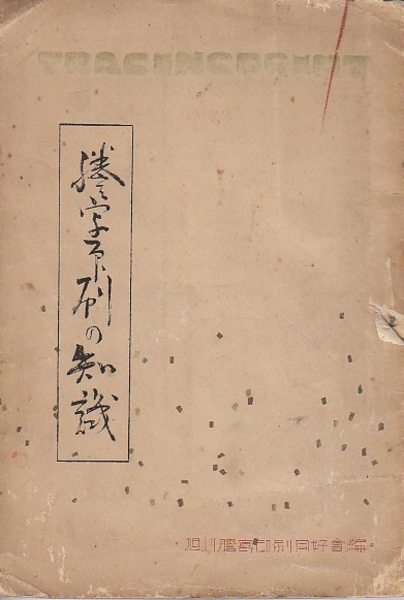 TRACINGPRINT
謄寫印刷の知識
旭川謄寫印刷同好會編